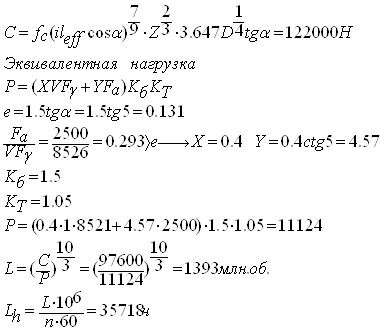 C = f_c(il_eff cosα)^(7/9) · Z^(2/3) · 3.647D^(1/4) tgα = 122000H
Эквивалентная нагрузка
P = (XVF_γ + YF_a)K_б K_T
e = 1.5tgα = 1.5tg5 = 0.131
F_a/VF_γ = 2500/8526 = 0.293⟩e → X = 0.4 Y = 0.4ctg5 = 4.57
K_б = 1.5
K_T = 1.05
P = (0.4·1·8521+4.57·2500)·1.5·1.05 = 11124
L = (C/P)^(10/3) = (97600/11124)^(10/3) = 1393млн.об.
L_h = L·10^6/n·60 = 35718ч